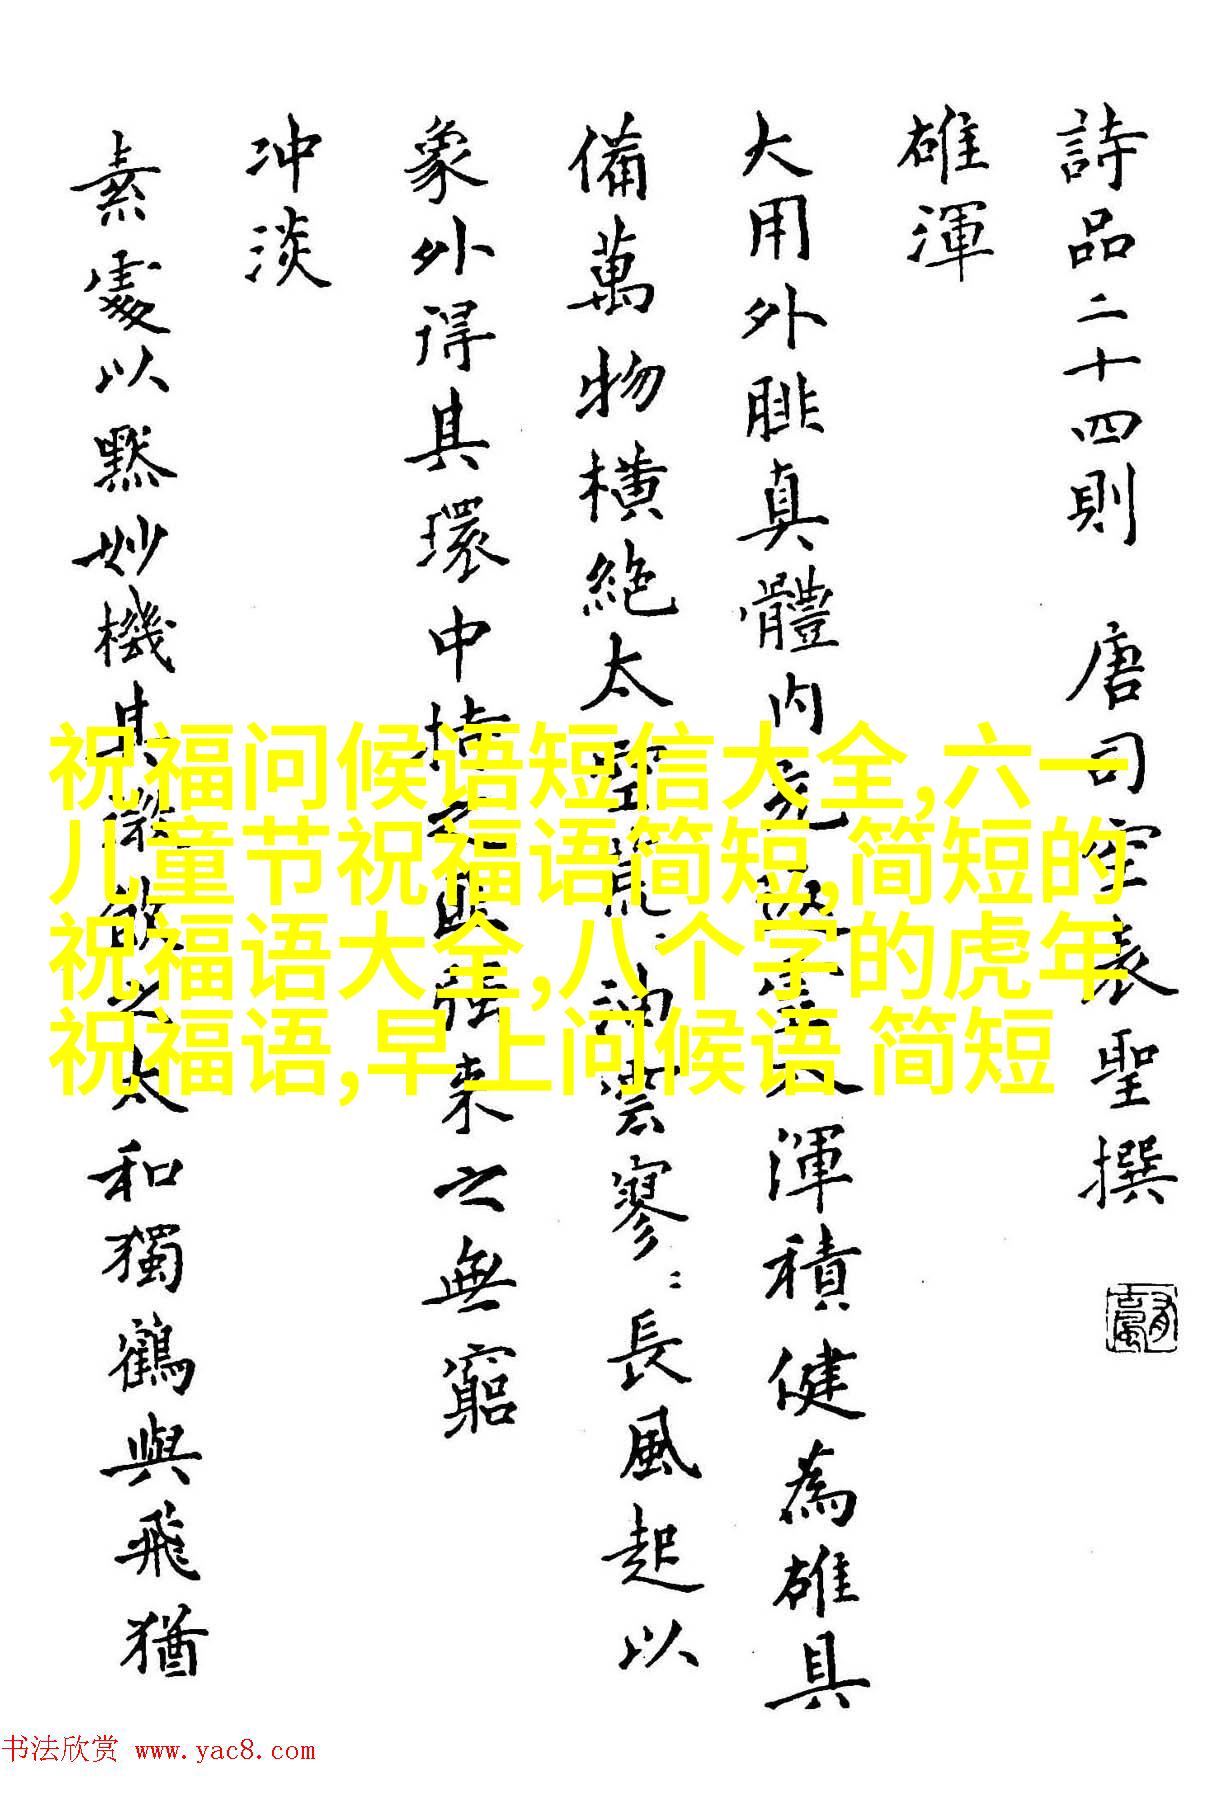 詩品二十四則 唐司空表聖撰
雄渾
大用外腓真體内充返虛入渾積健為雄具
備萬物橫絕太空荒:油雲寥:長風起以
象外得其環中持之匪強來之無窮
冲淡
素處以默妙機其微飲之太和獨鶴與飛猶
祝福问候语短信大全,六一
儿童节祝福语简短,简短的
祝福语大全,八个字的虎年
祝福语,早上问候语 简短
书法欣赏 www.yac8.com